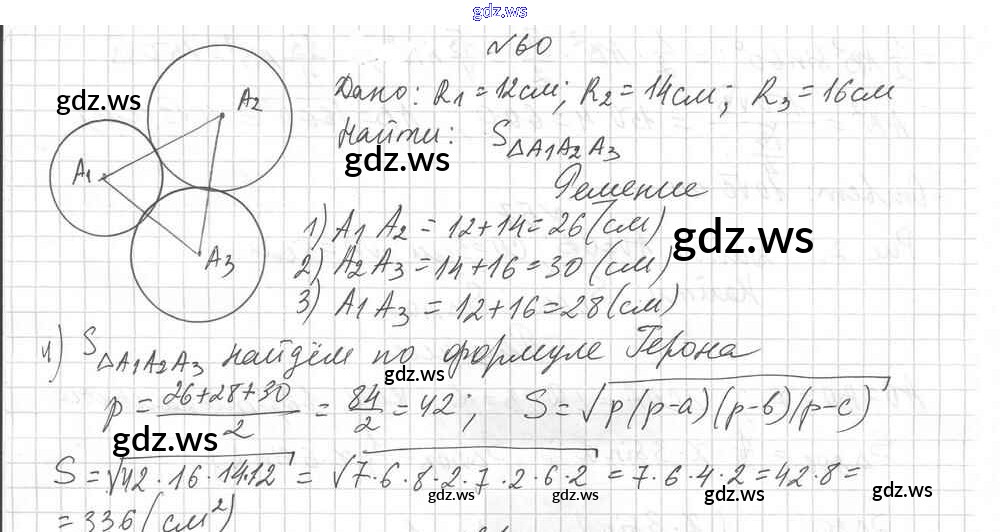 gdz.ws
№60
gdz.ws
A2
Дано: R1 = 12см; R2 = 14см; R3 = 16см
Найти: S△A1A2A3
gdz.ws
A1
Решение
1) A1A2 = 12+14 = 26 (см)
gdz.ws
2) A2A3 = 14+16 = 30 (см)
A3
3) A1A3 = 12+16 = 28 (см)
4) S△A1A2A3 найдём по формуле Герона
gdz.ws
p = (26+28+30)/2 = 84/2 = 42; S = √(p(p-a)(p-b)(p-c))
gdz.ws
S = √(42·16·14·12) = √(7·6·8·2·7·2·6·2) = 7·6·4·2 = 42·8 =
gdz.ws gdz.ws gdz.ws
= 336 (см²)
gdz.ws